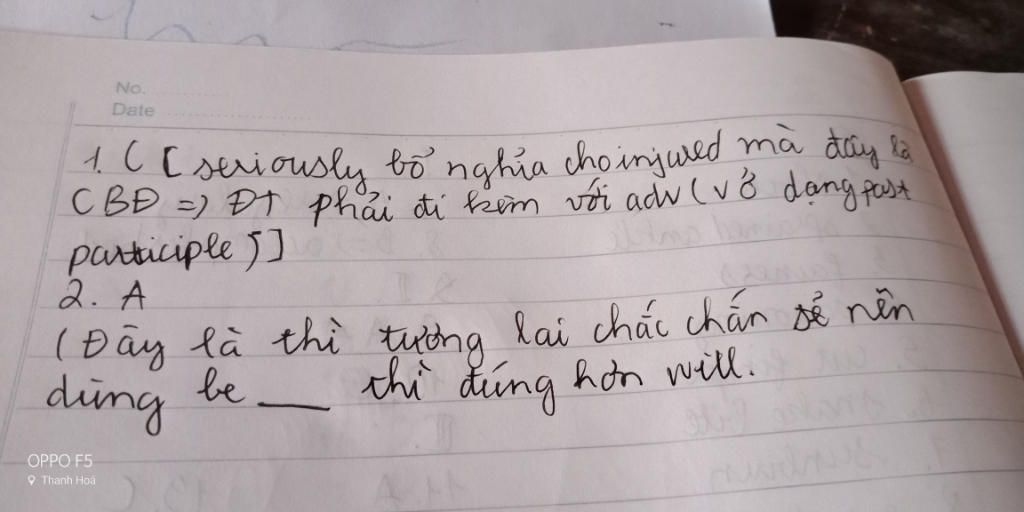 No.
Date
1. C [ seriously bổ nghĩa cho injured mà đây là
CBĐ => ĐT phải đi kèm với adv (V ở dạng past
participle)]
2. A
(Đây là thì tương lai chắc chắn sẽ nên
dùng be ___ thì đúng hơn will.
OPPO F5
Thanh Hoá